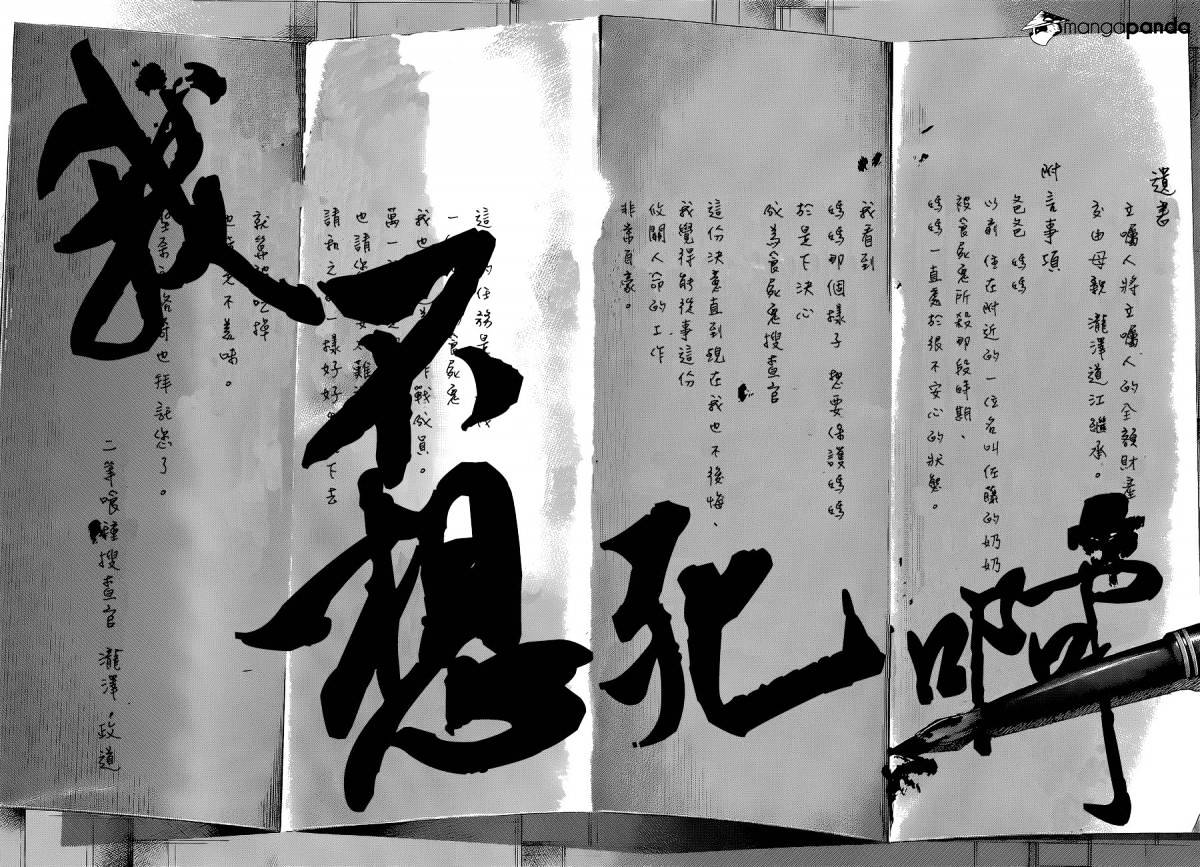 mangapanda
遺書
立囑人將立囑人的全額財產
交由母親 瀧澤道江繼承。
附言事項
爸爸 媽媽
以前 住在附近的一位名叫佐藤的奶奶
被食屍鬼所殺那段時期、
媽媽一直處於很不安心的狀態。
我看到
媽媽那個樣子 想要保護媽媽
於是下決心
成為食屍鬼搜查官
這份決意直到現在我也不後悔、
我覺得能從事這份
攸關人命的工作
非常自豪。
這 的任務是
一 食屍鬼
我也 作戰成員。
萬一
也請您 難
請和之 一樣好好 下去
就算被吃掉
也 不美味。
也拜託您了。
二等喰種搜查官 瀧澤 政道
我不想死啊